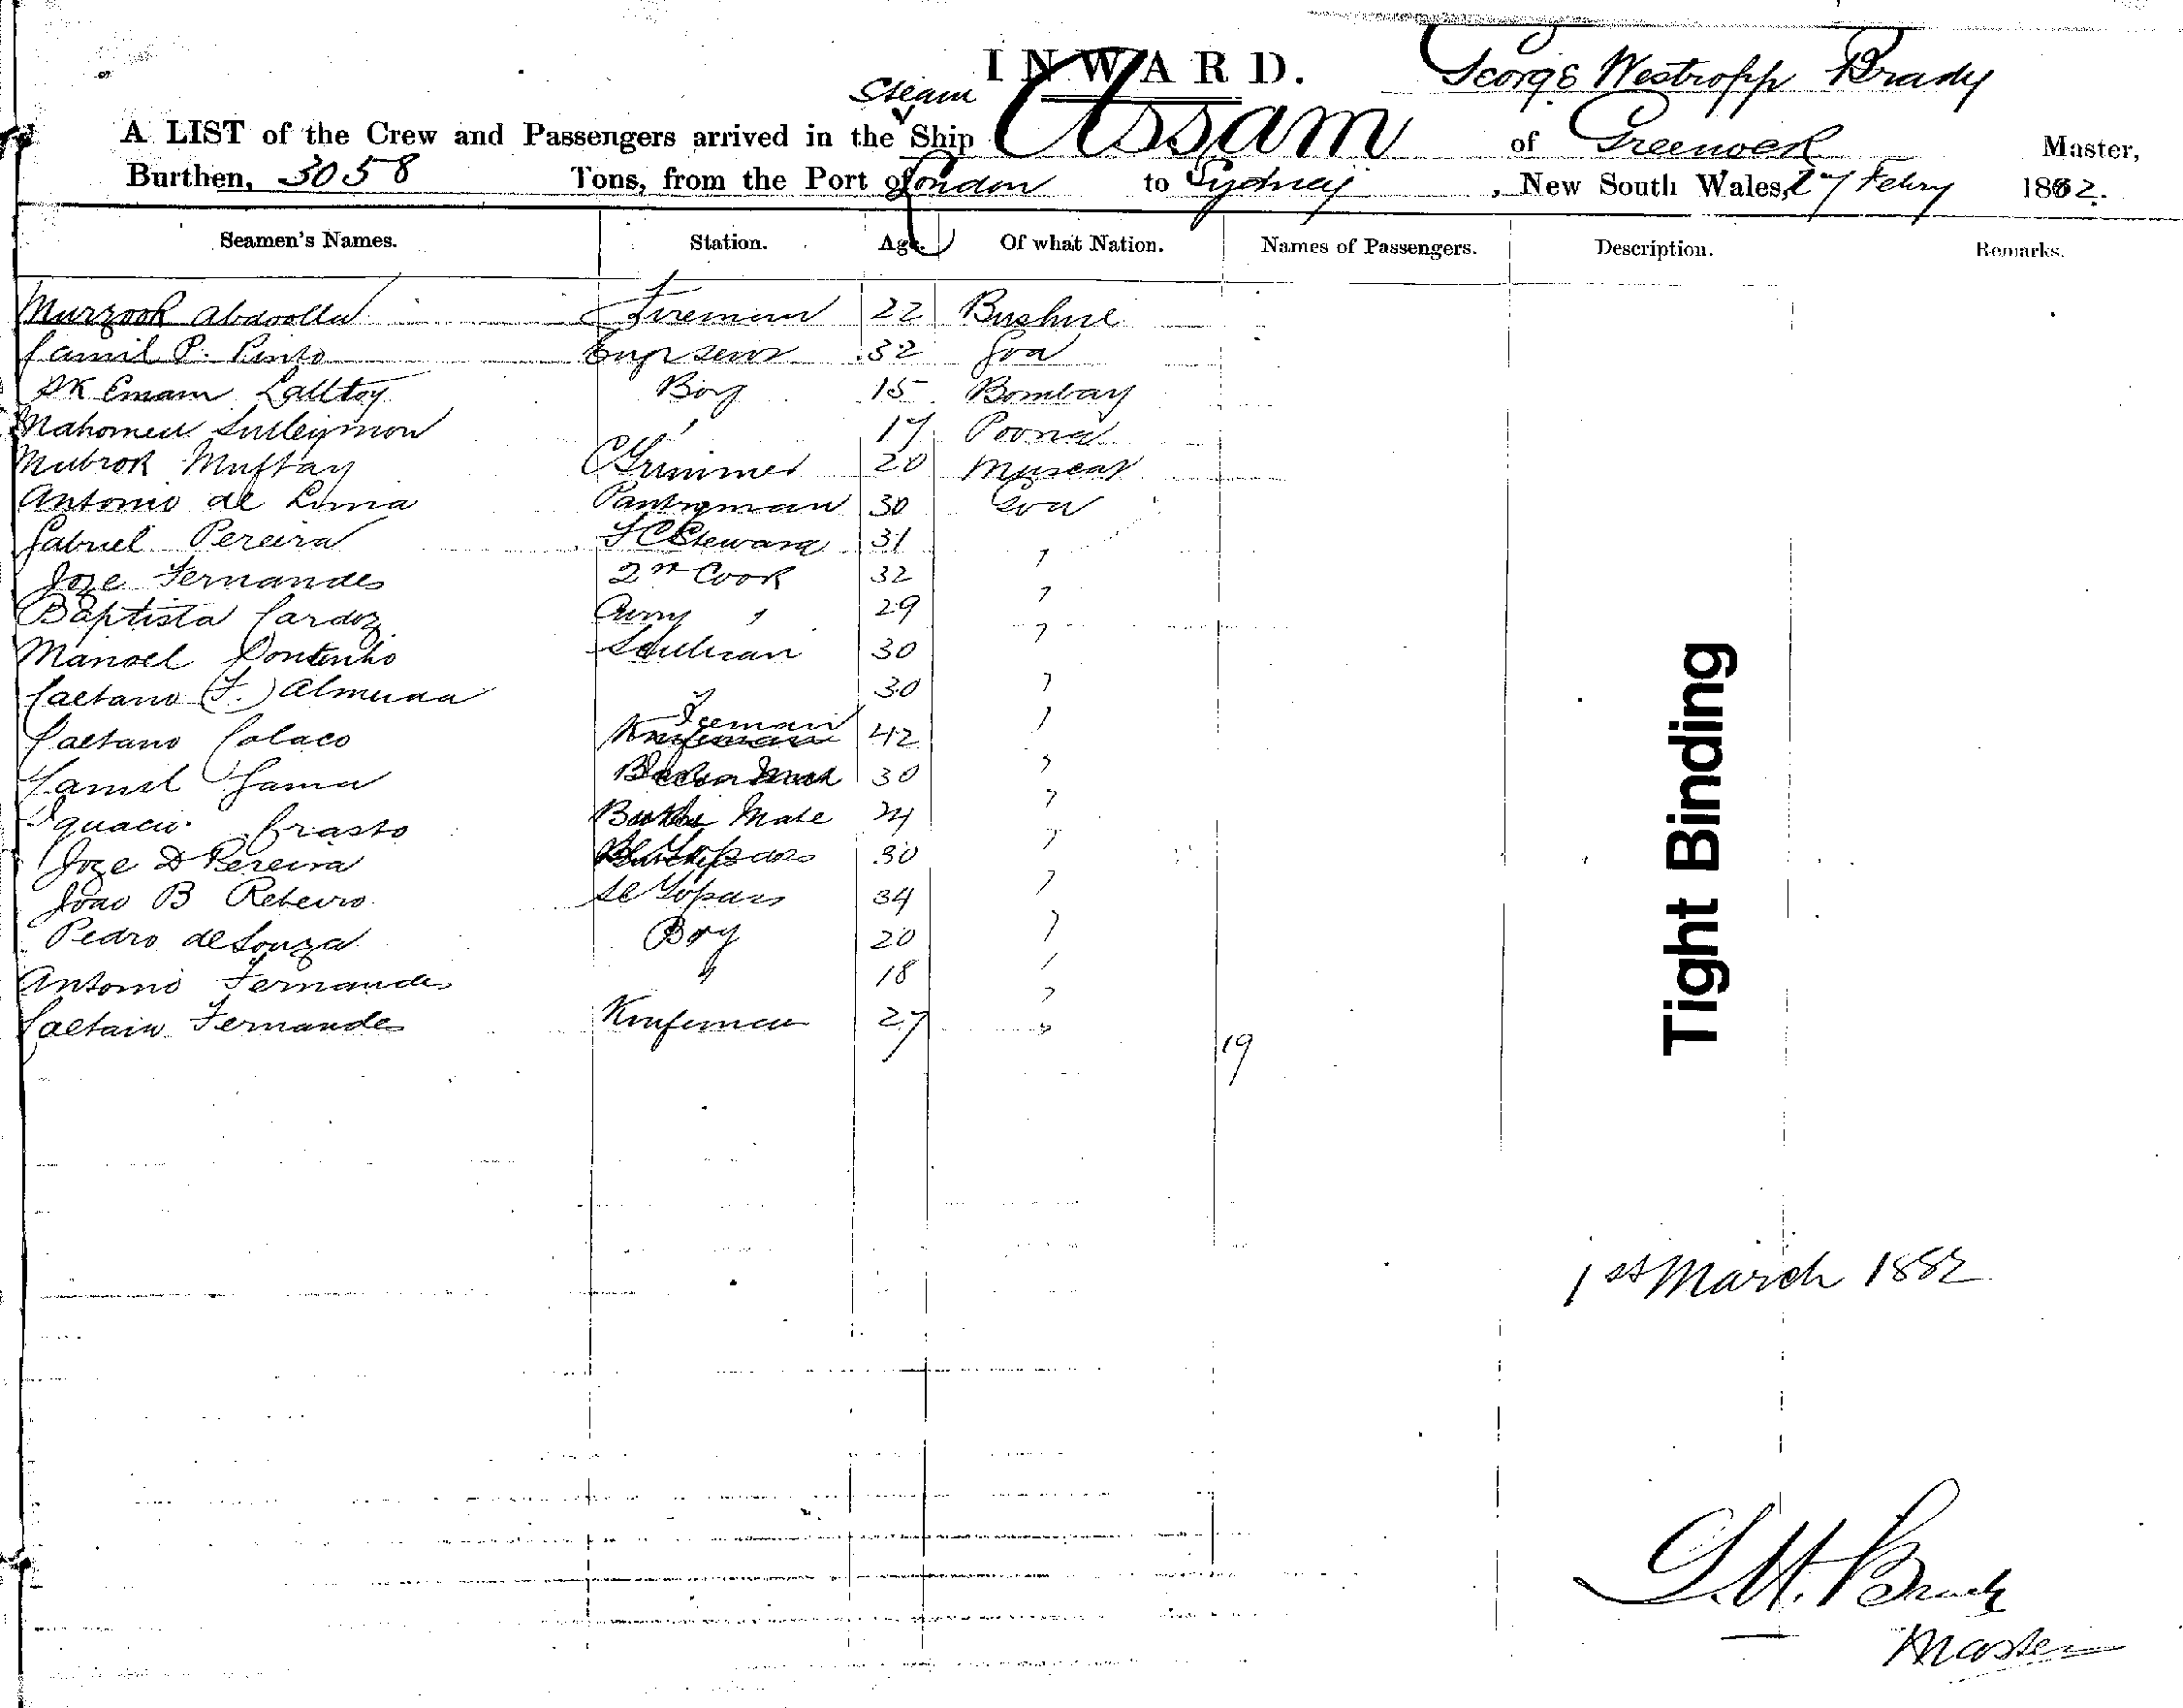 INWARD.
George Westropp Brady
Steam
A LIST of the Crew and Passengers arrived in the Ship Assam of Greenock Master,
Burthen, 3058 Tons, from the Port of London to Sydney, New South Wales, 27 Febry 1882.
Seamen's Names. Station. Age. Of what Nation. Names of Passengers. Description. Remarks.
Murzook Abdoolla Fireman 22 Bushire
Camil P. Pinto Engrs Servt 32 Goa
SK Emam Lalltoy Boy 15 Bombay
Mahomed Sulleymon " 17 Poona
Mubrok Muftay C Trimmer 20 Muscat
Antonio de Lima Pantryman 30 Goa
Gabriel Pereira SC Steward 31 "
Joze Fernandes 2nd Cook 32 "
Baptista Cardoz Curry " 29 "
Manoel Continho Scullian 30 "
Caetano (F.) Almeida " 30 "
Caetano Colaco Iceman 42 "
Camil Gama 30 "
Ignacio Crasto Mate 24 "
Joze D Pereira Topass 30 "
Joao B Rebeiro Topass 34 "
Pedro de Souza Boy 20 "
Antonio Fernandes " 18 "
Caetain Fernandes Knifeman 27 "
19
Tight Binding
1st March 1882
G.W. Brady
Master